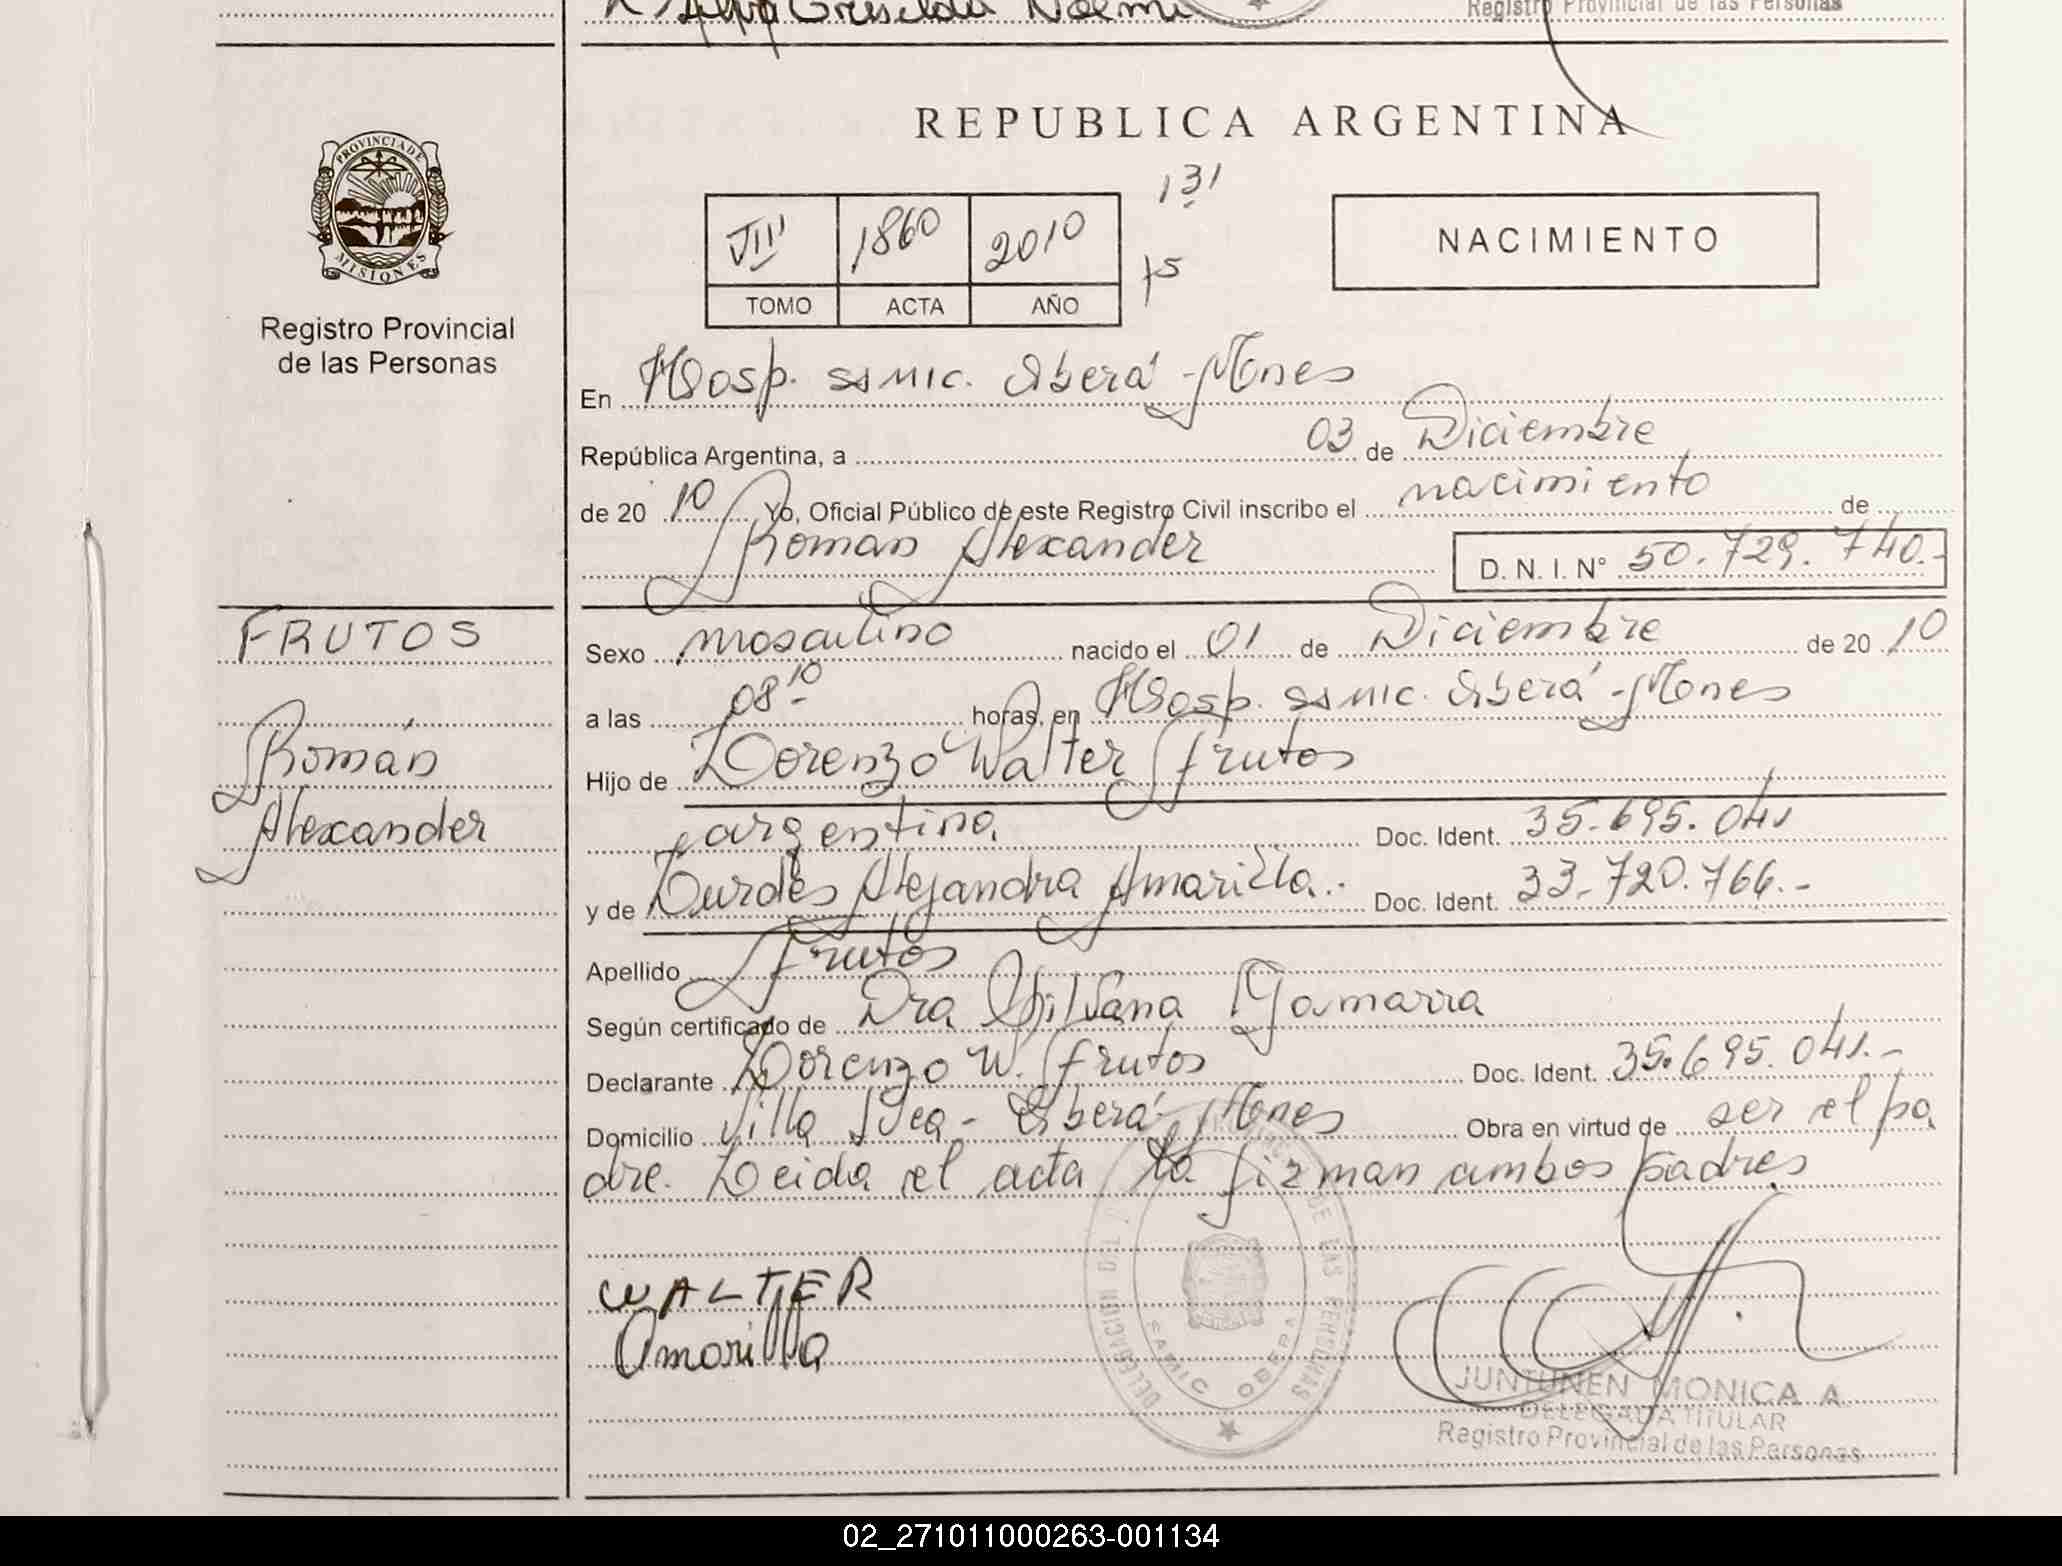 Alva Griselda Noemi
Registro Provincial de las Personas
REPUBLICA ARGENTINA
PROVINCIA DE
MISIONES
Registro Provincial
de las Personas
131
VIII 1860 2010
15
TOMO ACTA AÑO
NACIMIENTO
En Hosp. SAMIC. Oberá - Mnes
República Argentina, a 03 de Diciembre
de 20 10 Yo, Oficial Público de este Registro Civil inscribo el nacimiento de
Roman Alexander D. N. I. N° 50.729.740.-
FRUTOS
Román
Alexander
Sexo masculino nacido el 01 de Diciembre de 20 10
a las 08 10 horas, en Hosp. SAMIC. Oberá - Mones
Hijo de Lorenzo Walter Frutos
argentino. Doc. Ident. 35.695.041
y de Lurdes Alejandra Amarilla.. Doc. Ident. 33.720.766.-
Apellido Frutos
Según certificado de Dra Silvana Gamarra
Declarante Lorenzo W. Frutos Doc. Ident. 35.695.041.-
Domicilio Villa Svea - Oberá - Mones Obra en virtud de ser el pa
dre. Leida el acta la firman ambos padres
WALTER
Amarilla
DELEGACION DE LAS PERSONAS
SAMIC OBERA
JUNTUNEN MONICA A.
DELEGADA TITULAR
Registro Provincial de las Personas
02_271011000263-001134